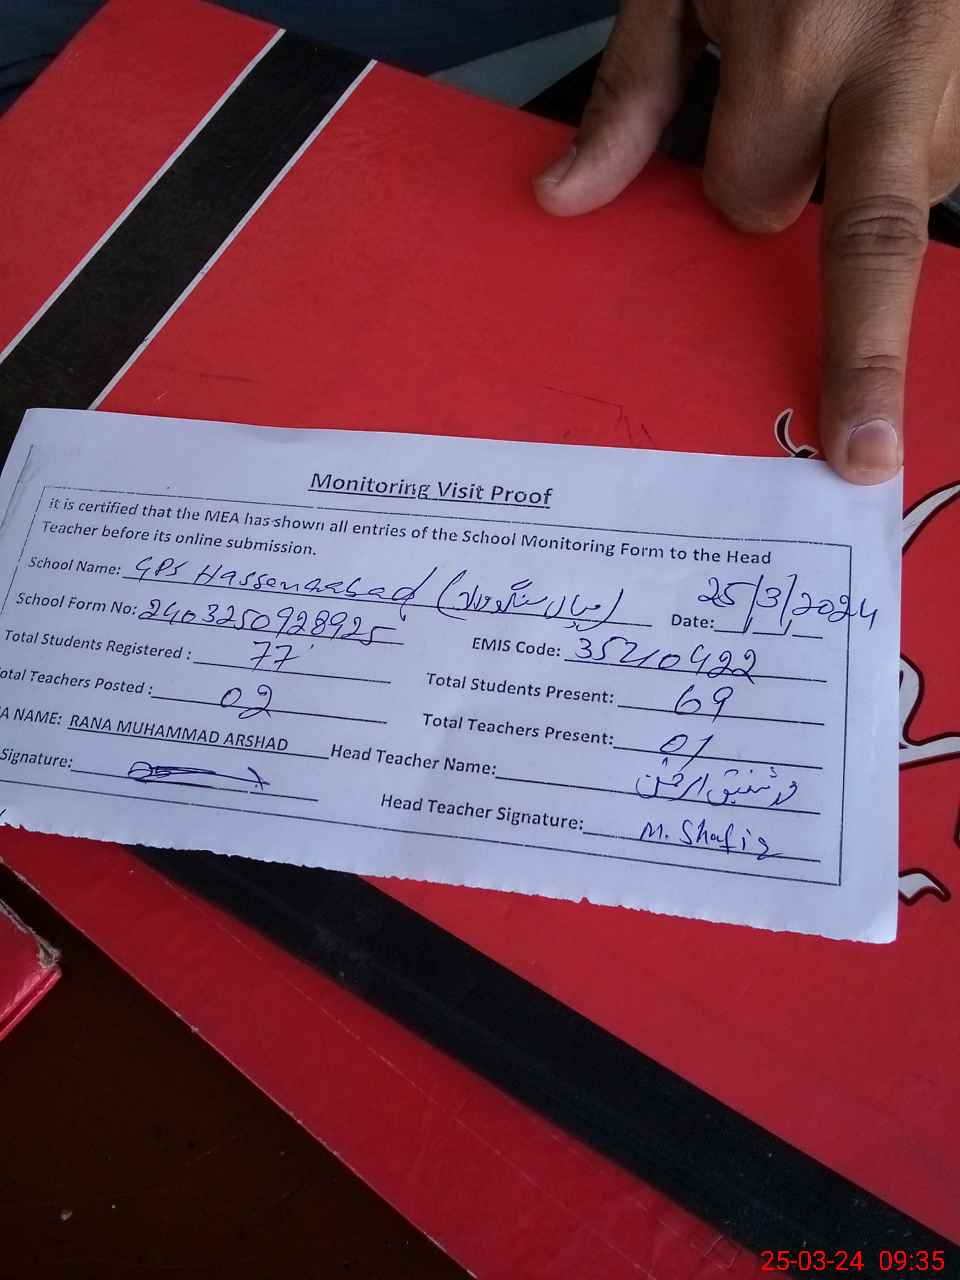 Monitoring Visit Proof
it is certified that the MEA has shown all entries of the School Monitoring Form to the Head
Teacher before its online submission.
School Name: GPS Hassanaabad
Date: 25/3/2024
School Form No: 2403250928925
EMIS Code: 35210422
Total Students Registered : 77
Total Students Present: 69
otal Teachers Posted : 02
Total Teachers Present: 01
A NAME: RANA MUHAMMAD ARSHAD
Head Teacher Name:
Signature:
Head Teacher Signature: M. Shafiq
25-03-24 09:35